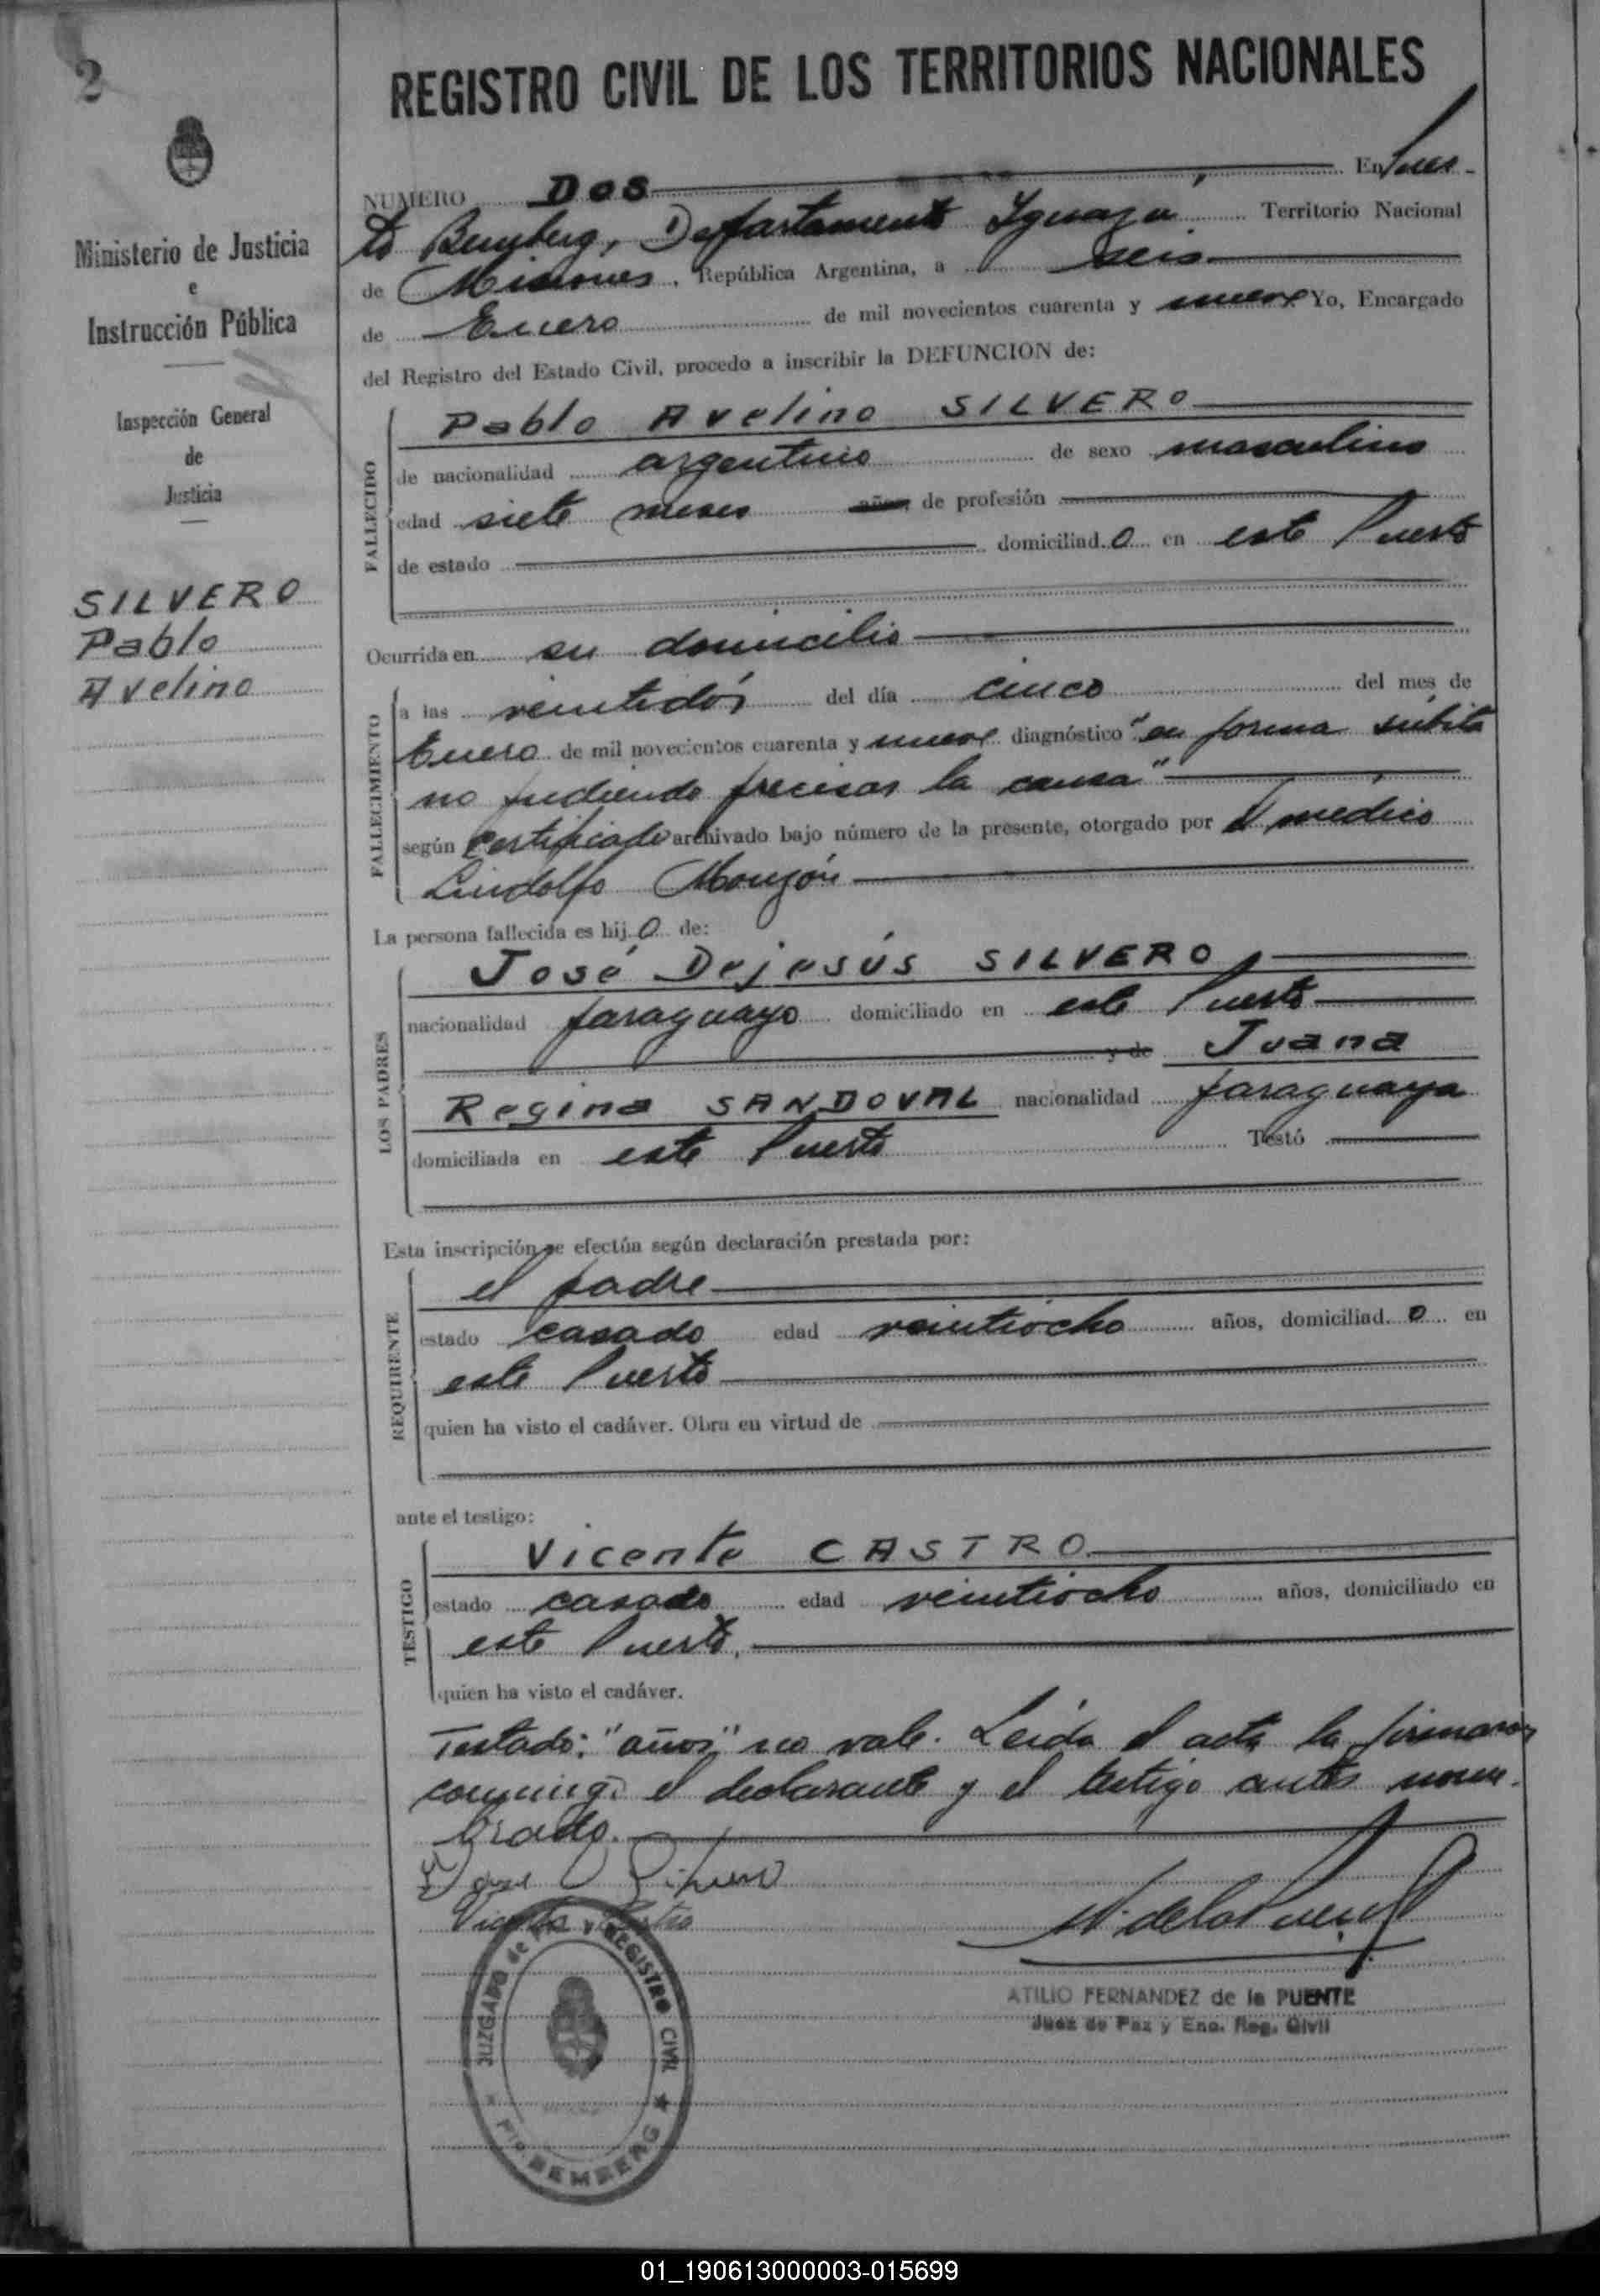 2
REGISTRO CIVIL DE LOS TERRITORIOS NACIONALES
Ministerio de Justicia
e
Instrucción Pública
Inspección General
de
Justicia
SILVERO
Pablo
Avelino
NUMERO DOS En Puer-
to Bemberg, Departamento Iguazú Territorio Nacional
de Misiones, República Argentina, a seis
de Enero de mil novecientos cuarenta y nueve Yo, Encargado
del Registro del Estado Civil, procedo a inscribir la DEFUNCION de:
FALLECIDO
Pablo Avelino SILVERO
de nacionalidad argentino de sexo masculino
edad siete meses años de profesión
de estado domiciliad o en este Puerto
Ocurrida en su domicilio
FALLECIMIENTO
a las veintidós del día cinco del mes de
Enero de mil novecientos cuarenta y nueve diagnóstico "en forma súbita
no pudiendo precisar la causa"
según certificado archivado bajo número de la presente, otorgado por el médico
Lindolfo Monzón
La persona fallecida es hij o de:
LOS PADRES
José Dejesús SILVERO,
nacionalidad paraguayo domiciliado en este Puerto
y de Juana
Regina SANDOVAL nacionalidad paraguaya
domiciliada en este Puerto Testó
Esta inscripción se efectúa según declaración prestada por:
REQUIRENTE
el padre
estado casado edad veintiocho años, domiciliad o en
este Puerto
quien ha visto el cadáver. Obra en virtud de
ante el testigo:
TESTIGO
Vicente CASTRO
estado casado edad veintiocho años, domiciliado en
este Puerto,
quien ha visto el cadáver.
Testado: "años" no vale. Leída el acta la firmaron
conmigo el declarante y el testigo antes nom-
brado.
José Silvero
Vicente Castro
A. de la Puente
ATILIO FERNANDEZ de la PUENTE
Juez de Paz y Enc. Reg. Civil
JUZGADO de PAZ y REGISTRO CIVIL
Pto. BEMBERG
01_190613000003-015699